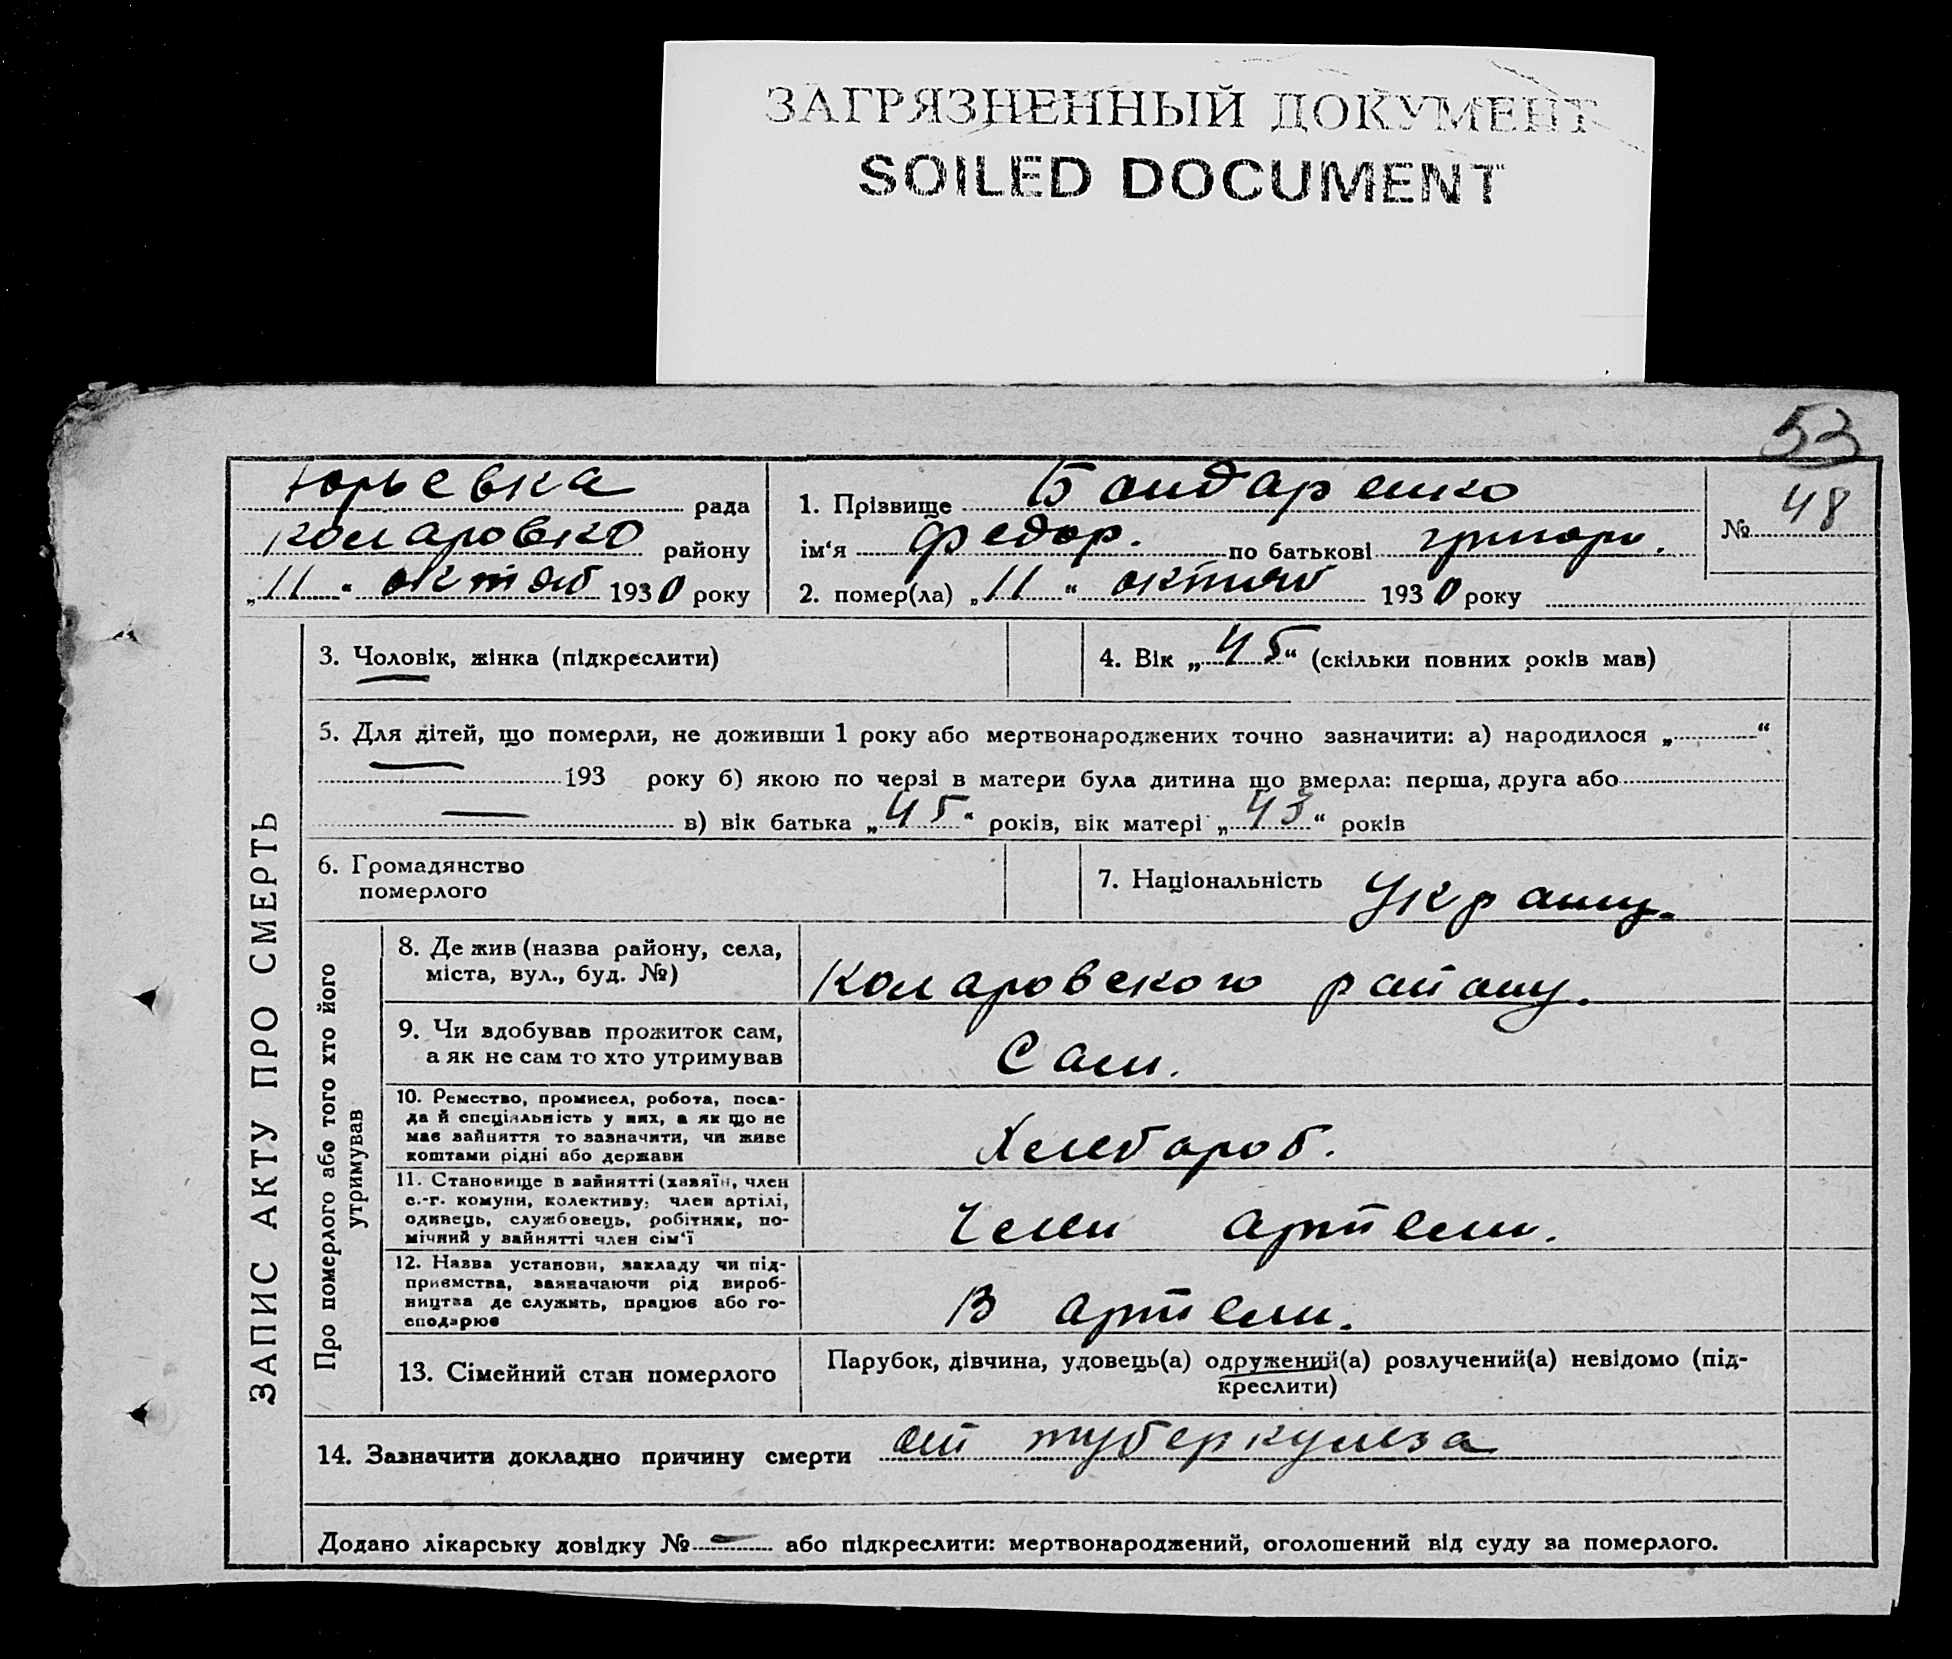 ЗАГРЯЗНЕННЫЙ ДОКУМЕНТ
SOILED DOCUMENT
53
Юрьевка рада
Коларовко району
„11“ октяб 1930 року
1. Прізвище Бондаренко
ім‘я Федор. по батькові григори.
2. помер(ла) „11“ октяб 1930 року
№ 48
ЗАПИС АКТУ ПРО СМЕРТЬ
3. Чоловік, жінка (підкреслити)
4. Вік „45“ (скільки повних років мав)
5. Для дітей, що померли, не доживши 1 року або мертвонароджених точно зазначити: а) народилося „ “
193 року б) якою по черзі в матери була дитина що вмерла: перша, друга або
— в) вік батька „45“ років, вік матері „43“ років
6. Громадянство
померлого
7. Національність Украин.
Про померлого або того хто його
утримував
8. Де жив (назва району, села,
міста, вул., буд. №)
Коларовского району.
9. Чи здобував прожиток сам,
а як не сам то хто утримував
Сам.
10. Ремество, промисел, робота, поса-
да й спеціяльність у них, а як що не
має зайняття то зазначити, чи живе
коштами рідні або держави
Хлебароб.
11. Становище в зайнятті (хазяїн, член
с.-г. комуни, колективу, член артілі,
одинець, службовець, робітник, по-
мічний у зайнятті член сім‘ї
Член артели.
12. Назва установи, закладу чи під-
приємства, зазначаючи рід вироб-
ництва де служить, працює або го-
сподарює
В артели.
13. Сімейний стан померлого
Парубок, дівчина, удовець(а) одружений(а) розлучений(а) невідомо (під-
креслити)
14. Зазначити докладно причину смерти от туберкулеза
Додано лікарську довідку № — або підкреслити: мертвонароджений, оголошений від суду за померлого.